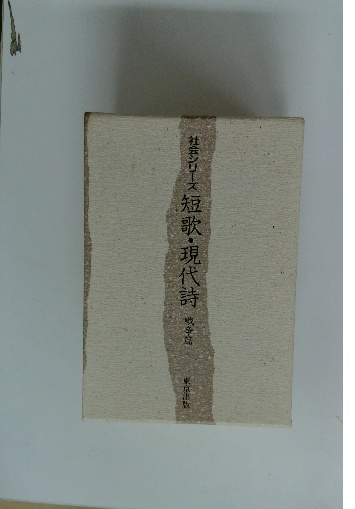 社会シリーズ
短歌・現代詩
戦争篇
東京出版